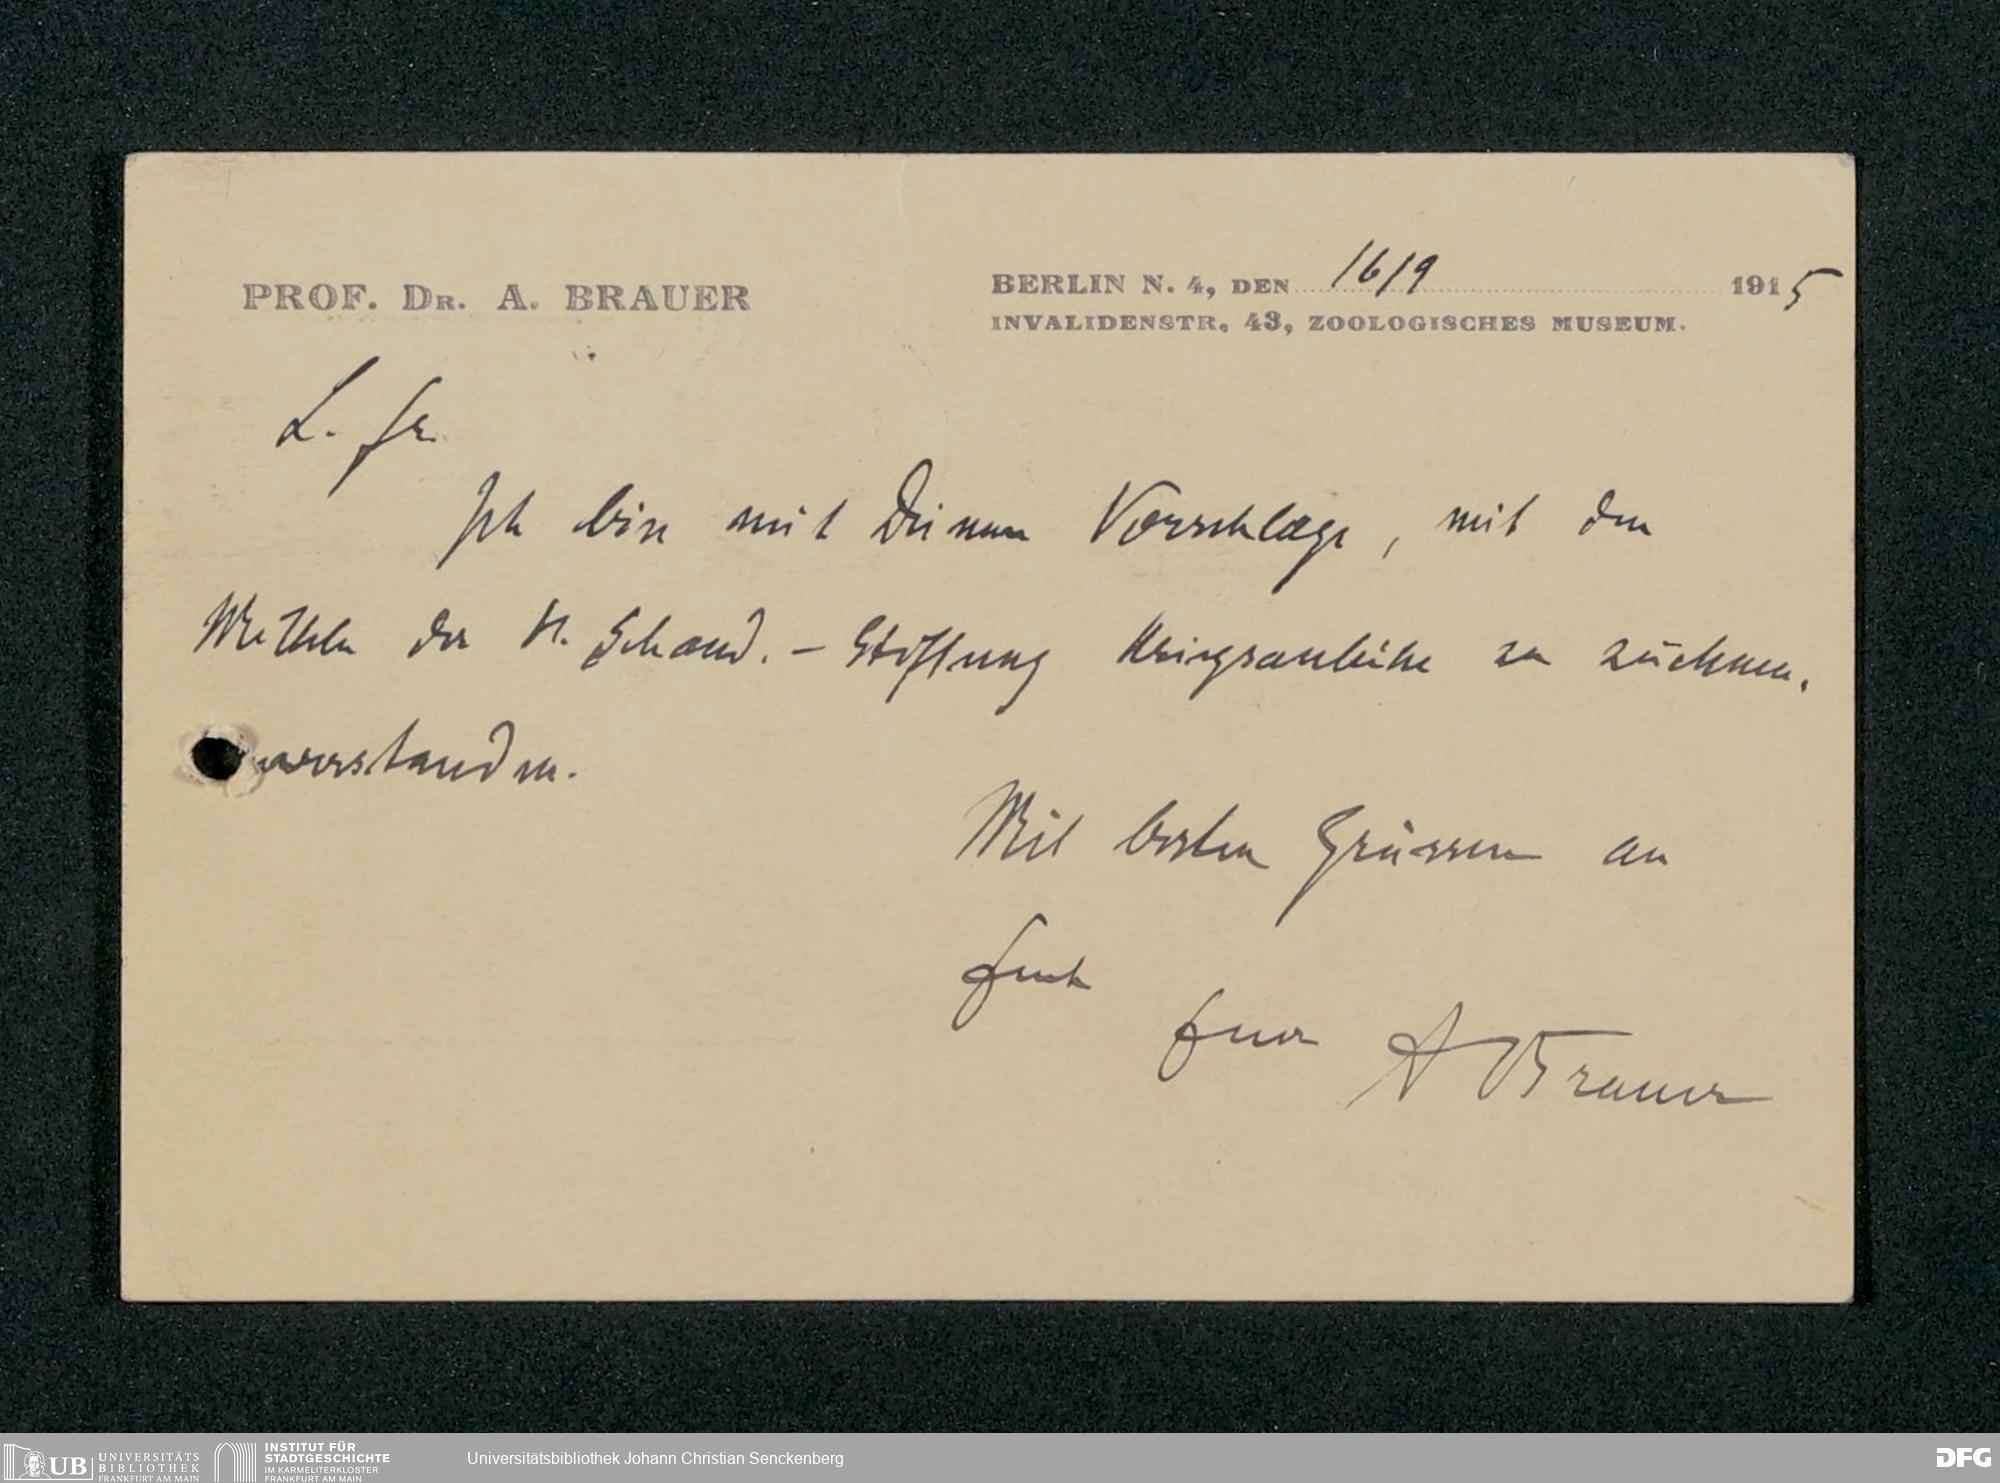 PROF. DR. A. BRAUER
BERLIN N. 4, DEN 16/9 1915
INVALIDENSTR. 43, ZOOLOGISCHES MUSEUM.
L. Fr.
Ich bin mit Deinem Vorschlage, mit den
Mitteln der Fr. Schaud. - Stiftung Kriegsanleihe zu zeichnen,
verstanden.
Mit besten Grüssen an
Euch
Euer A Brauer
UB UNIVERSITÄTS
BIBLIOTHEK
FRANKFURT AM MAIN
INSTITUT FÜR
STADTGESCHICHTE
IM KARMELITERKLOSTER
FRANKFURT AM MAIN
Universitätsbibliothek Johann Christian Senckenberg
DFG